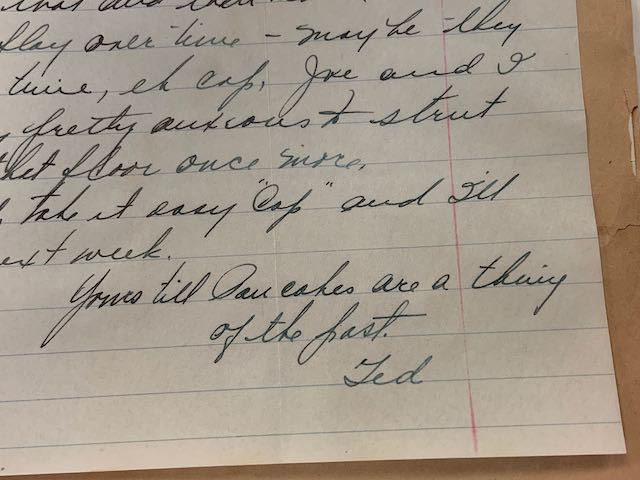 that and then
play over time - maybe they
time, eh cap. Joe and I
pretty anxious to strut
that floor once more.
take it easy "Cap" and I'll
next week.
Yours till Pancakes are a thing
of the past.
Ted